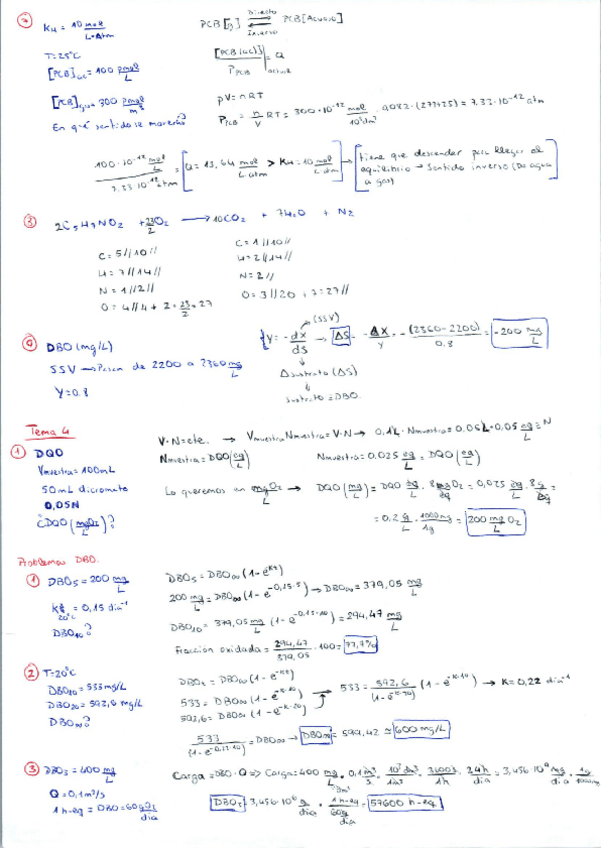 ⑦ K_H = 10 mol/L·Atm
PCB[g] ⇌ PCB[Acuoso]
Directo
Inverso
T=25ºC
[PCB(ac)]/P_PCB |actual = Q
[PCB]ac = 100 pmol/L
[PCB]gas = 300 pmol/m³
En qué sentido se moverá?
pV = nRT
P_PCB = n/V RT = 300·10^-12 mol/10³dm³ · 0,082·(273+25) = 7.33·10^-12 atm
100·10^-12 mol/L / 7.33·10^-12 atm = [Q = 13,64 mol/L atm > K_H = 10 mol/L atm] → [tiene que descender para llegar al
equilibrio → Sentido inverso (Do agua
a gas)]
⑧ 2C5H7NO2 + 23/2 O2 → 10CO2 + 7H2O + N2
C = 5//10//
H = 7//14//
N = 1//2//
O = 4//4 + 2·23/2 = 27
C = 1//10//
H = 2//14//
N = 2//
O = 3//20 + 7 = 27//
⑨ DBO (mg/L)
SSV → Pasan de 2200 a 2360 mg/L
Y = 0.8
(SSV)
{Y = -dX/dS → ΔS = -ΔX/Y = -(2360-2200)/0.8 = -200 mg/L
Δsustrato (ΔS)
sustrato = DBO.
Tema 4
① DQO
Vmuestra = 100mL
50mL dicromato
0,05N
¿DQO (mgO2/L)?
V·N = cte. → Vmuestra Nmuestra = V·N → 0,1L·Nmuestra = 0,05L·0,05 eq/L = N
Nmuestra = DQO (eq/L)
Nmuestra = 0.025 eq/L = DQO (eq/L)
Lo queremos en mgO2/L → DQO (mg/L) = DQO eq/L · 8 g O2/eq = 0,025 eq/L · 8g/eq =
= 0.2 g/L · 1000mg/1g = 200 mg/L O2
Problemas DBO.
① DBO5 = 200 mg/L
K 20ºC = 0,15 dia^-1
DBO10?
DBO5 = DBO∞ (1-e^-Kt)
200 mg/L = DBO∞ (1-e^-0,15·5) → DBO∞ = 379,05 mg/L
DBO10 = 379,05 mg/L (1-e^-0,15·10) = 294,47 mg/L
Fracción oxidada = 294,47/379,05 · 100 = 77,7%
② T=20ºC
DBO10 = 533 mg/L
DBO20 = 592,6 mg/L
DBO∞?
DBOt = DBO∞ (1-e^-Kt)
533 = DBO∞ (1-e^-K·10)
592,6 = DBO∞ (1-e^-K·20)
533 = 592,6/(1-e^-K·20) (1-e^-K·10) → K = 0,22 dia^-1
533/(1-e^-0,22·10) = DBO∞ → DBO∞ = 599,42 ≃ 600 mg/L
③ DBO5 = 400 mg/L
Q = 0,1m³/s
1 h-eq = DBO = 60gO2/dia
Carga = DBO·Q => Carga = 400 mg/L · 0,1m³/s · 10³dm³/1m³ · 3600s/1h · 24h/dia = 3,456·10^9 mg/dia · 1g/1000mg
DBO5 = 3,456·10^6 g/dia · 1h-eq/60g/dia = 57600 h-eq